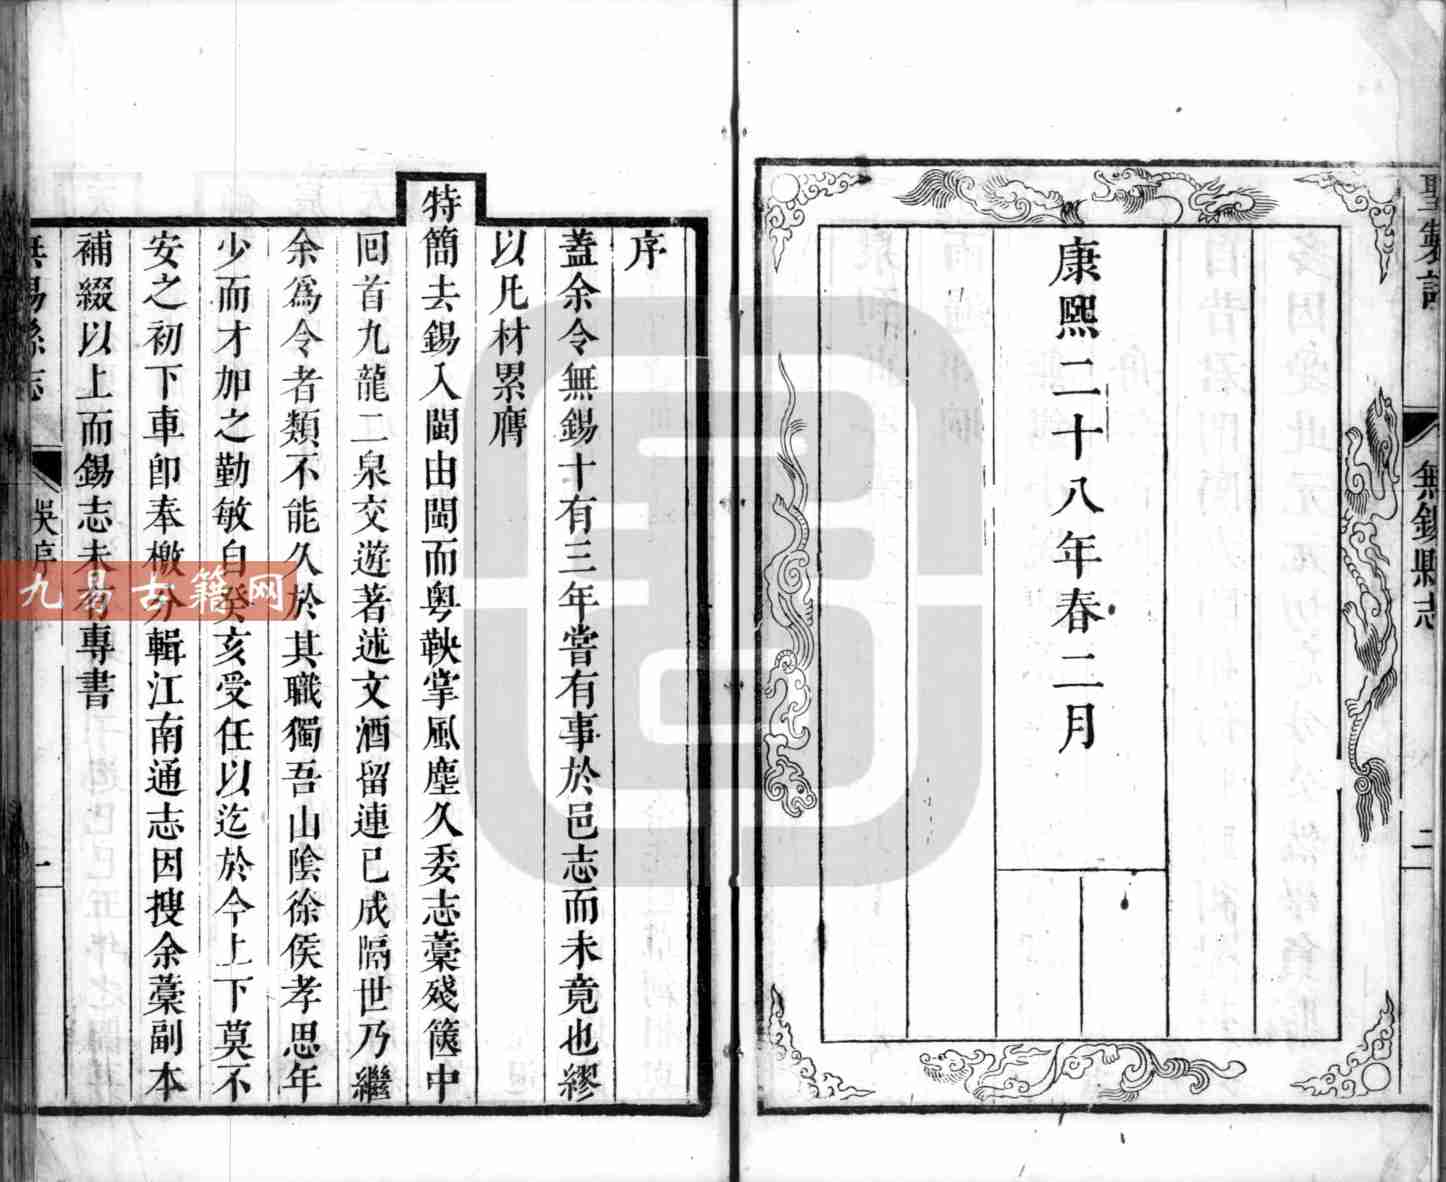 聖製詩
無錫縣志
二
康熙二十八年春二月
序
蓋余令無錫十有三年嘗有事於邑志而未竟也繆
以凡材累膺
特簡去錫入閩由閩而粵鞅掌風塵久委志藁殘篋中
回首九龍二泉交遊著述文酒留連已成隔世乃繼
余爲令者類不能久於其職獨吾山陰徐侯孝思年
少而才加之勤敏自癸亥受任以迄於今上下莫不
安之初下車卽奉檄分輯江南通志因搜余藁副本
補綴以上而錫志未有專書
無錫縣志
吳序
一
九易古籍网